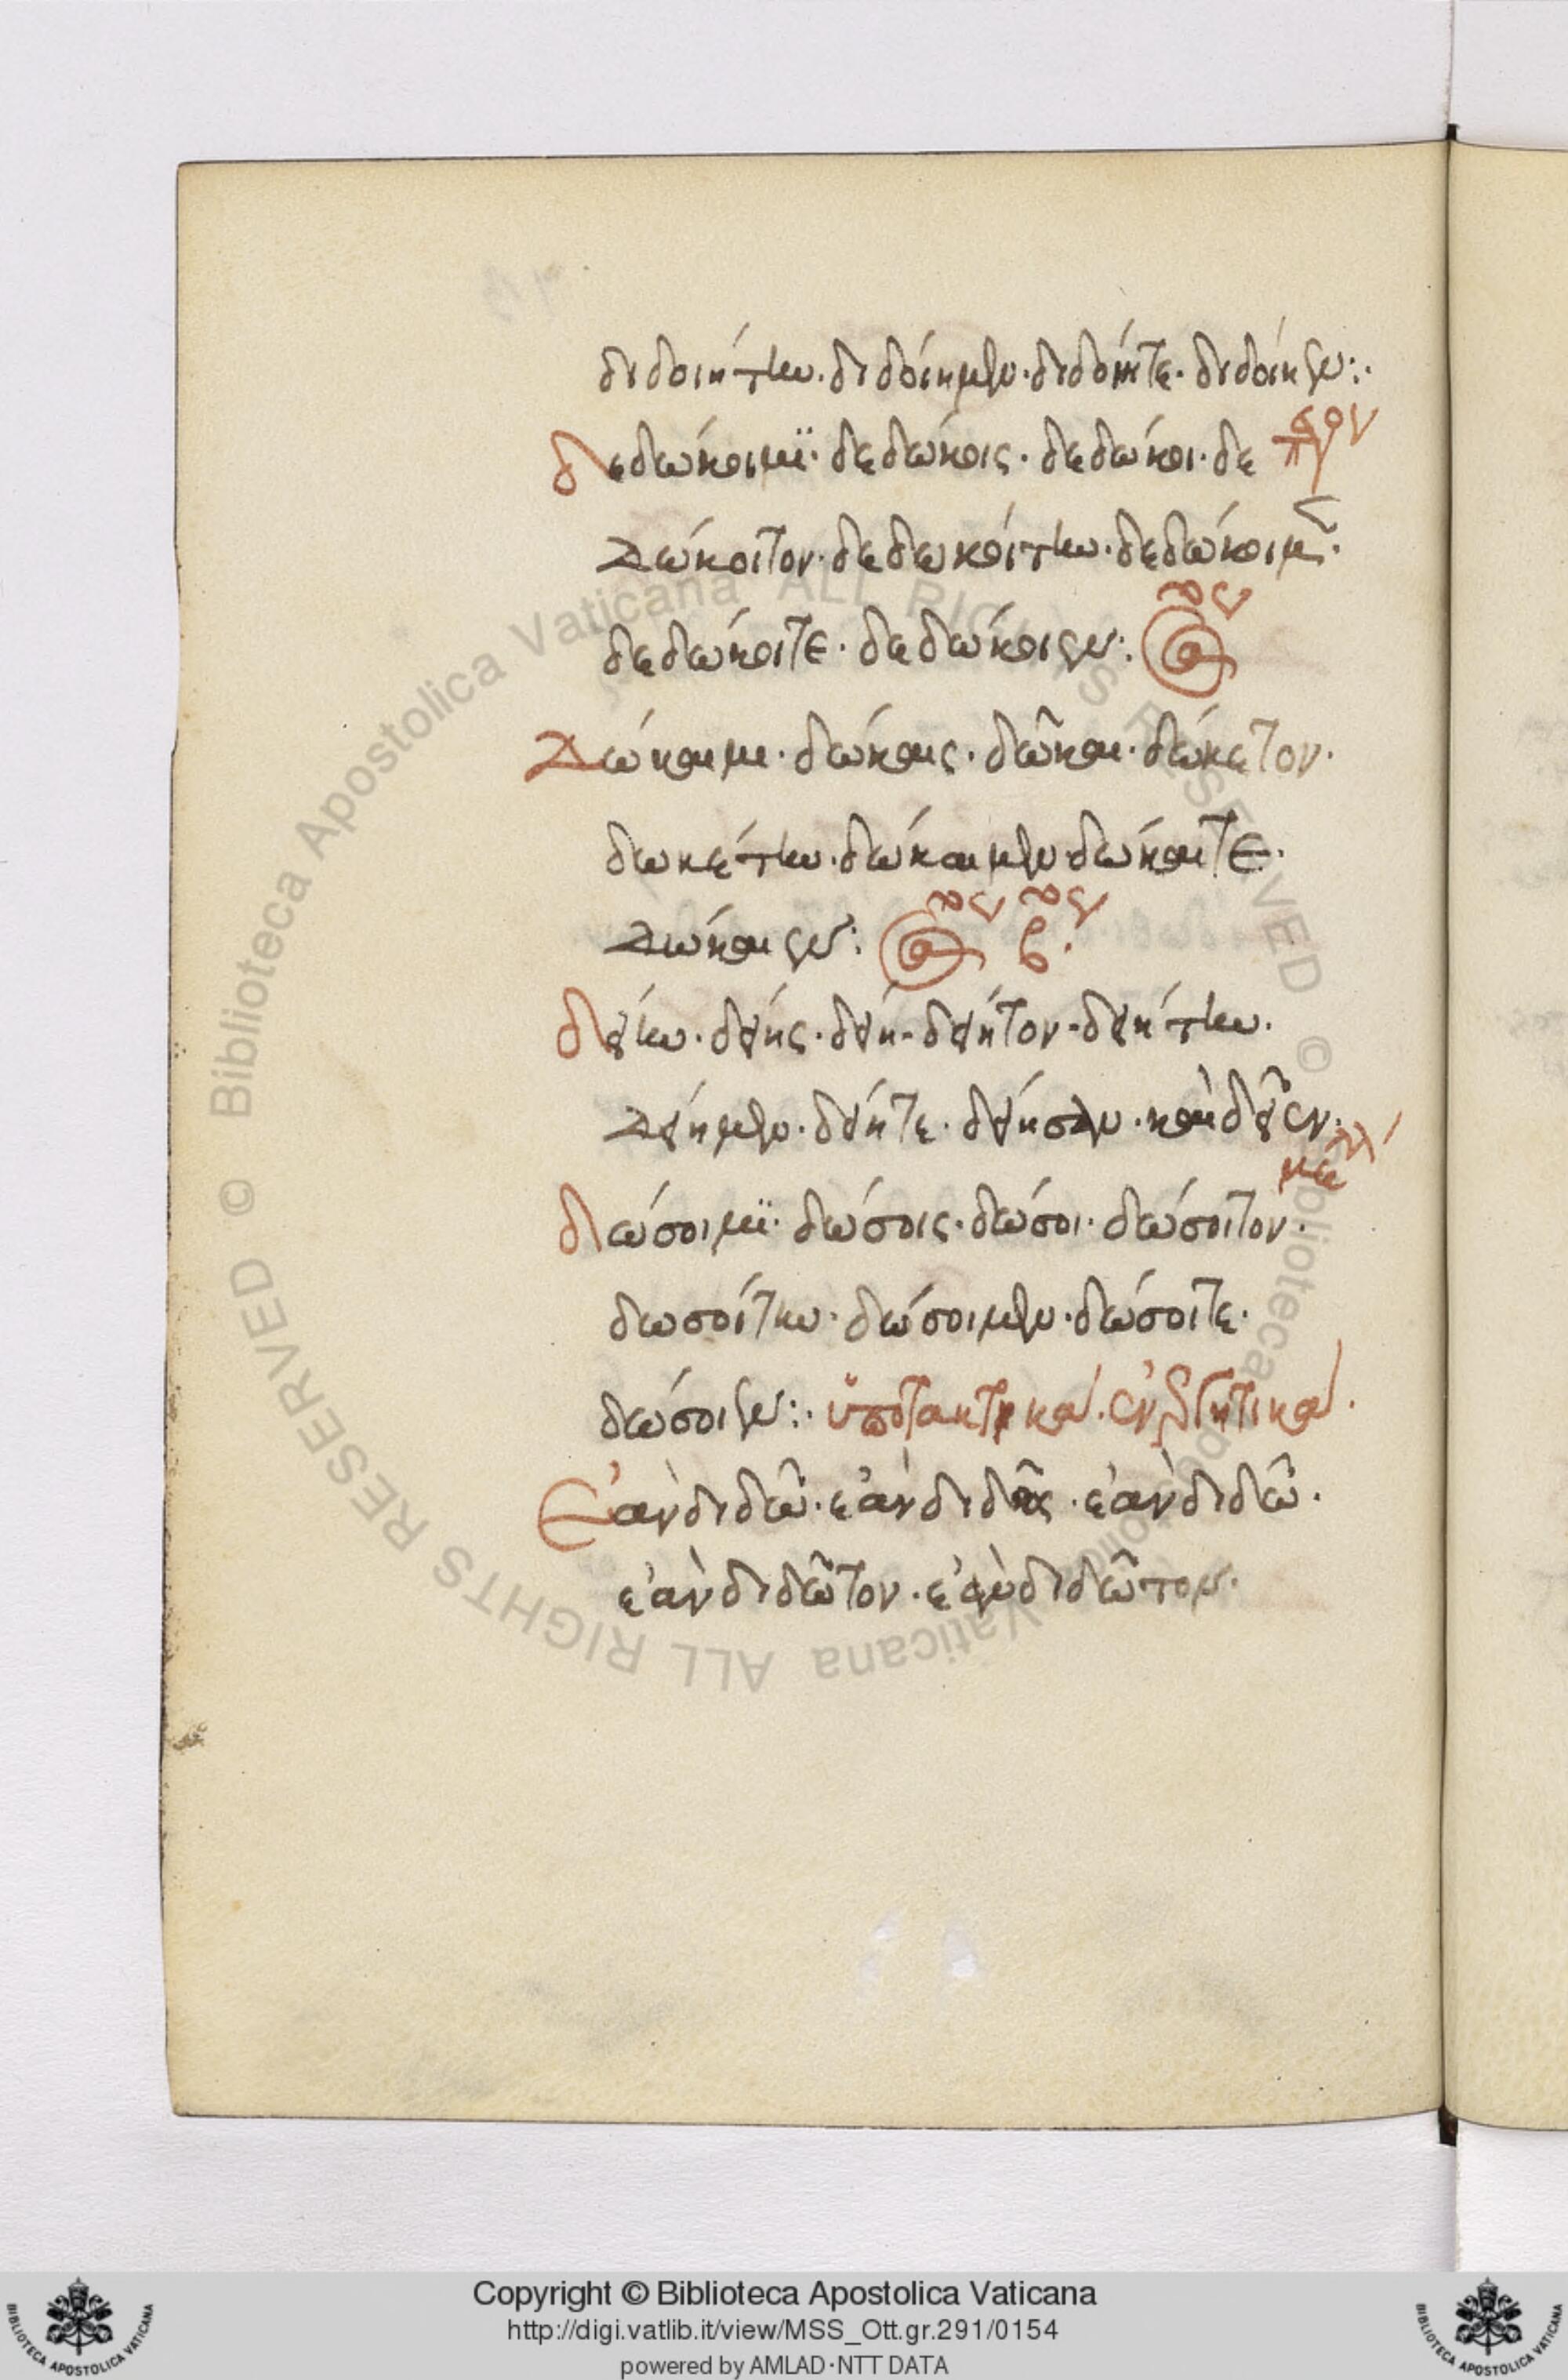 διδοιήτην· διδοίημεν· διδοίητε· διδοίησαν:·
δεδώκοιμϊ· δεδώκοις· δεδώκοι· δε
δώκοιτον· δεδωκοίτην· δεδώκοιμ̑·
δεδώκοιτε· δεδώκοιεν:
Δώκαιμι· δώκαις· δῶκαι· δώκαιτον·
δωκαίτην· δώκαιμεν· δώκαιτε·
δώκαιεν: β·
δοίην· δοίης· δοίη· δοίητον· δοιήτην·
δοίημεν· δοίητε· δοίησαν· καὶ δοῖεν·
δώσοιμϊ· δώσοις· δώσοι· δώσοιτον·
δωσοίτην· δώσοιμεν· δώσοιτε·
δώσοιεν:· ὑποτακτικὰ· ἐνεργητικὰ·
Ἐὰν διδῶ· ἐὰν διδῷς· ἐὰν διδῶ·
ἐὰν διδῶτον· ἐὰν διδῶτον·
Copyright © Biblioteca Apostolica Vaticana
http://digi.vatlib.it/view/MSS_Ott.gr.291/0154
powered by AMLAD·NTT DATA